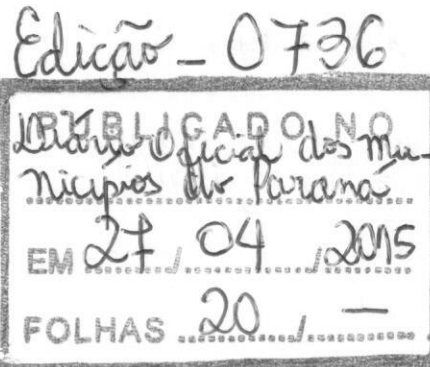 Edição - 0736
PUBLICADO NO
Diário Oficial dos Mu-
nicípios do Paraná
EM 27 / 04 / 2015
FOLHAS 20 / —